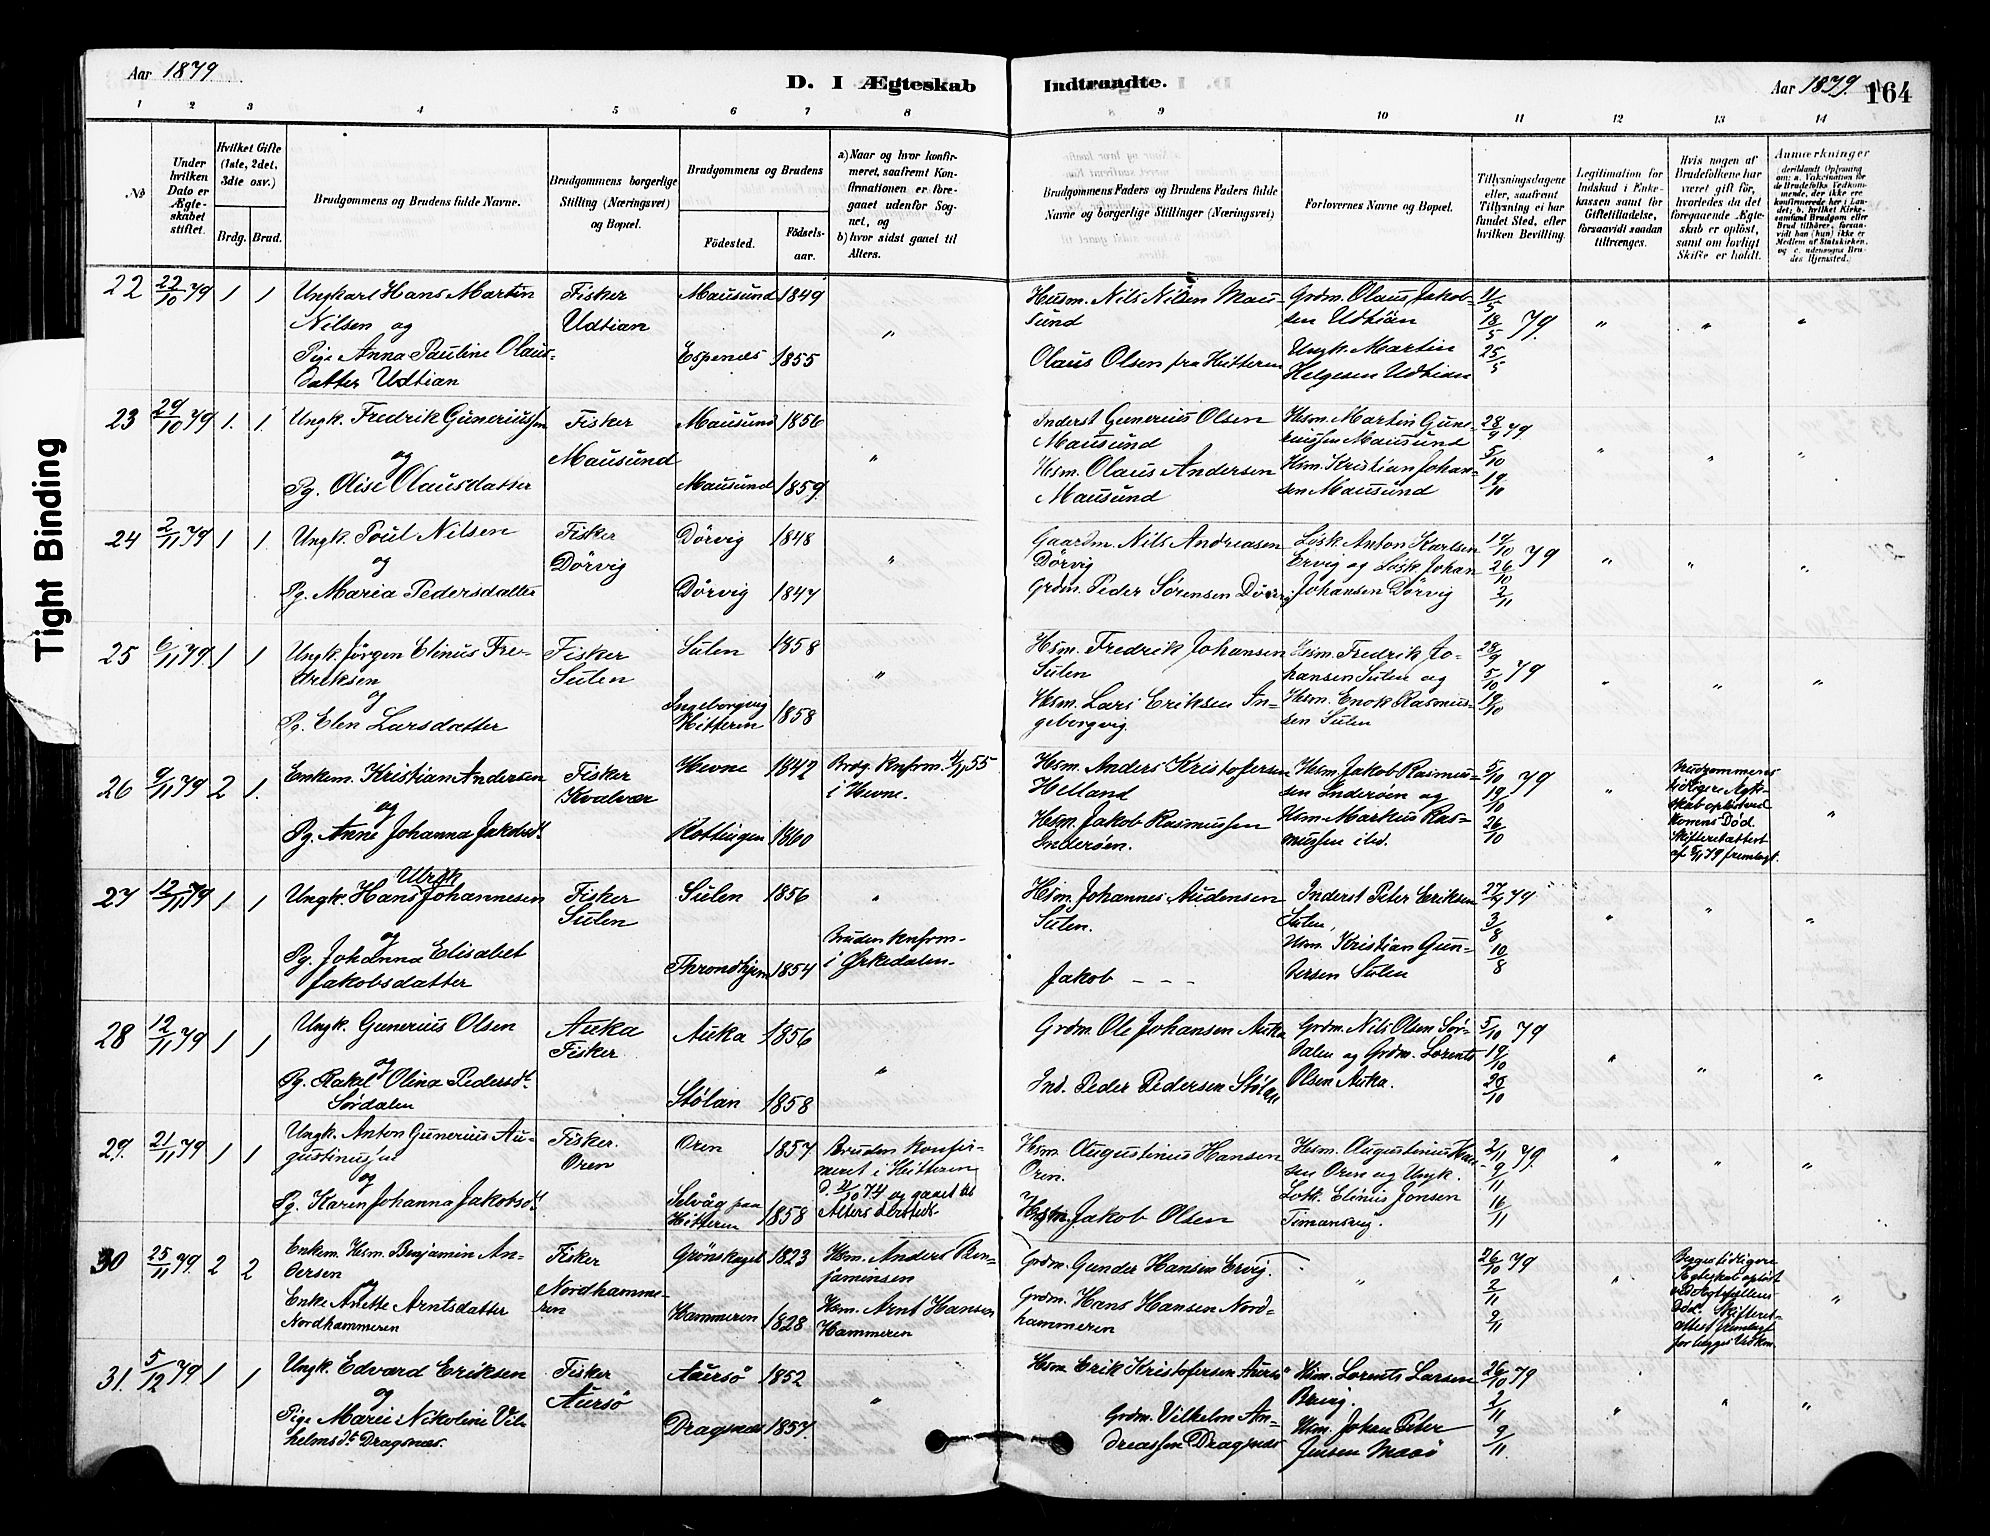 Aar 1879.
D. I Ægteskab
Indtraadte.
Aar 1879.
164
1 2 3 4 5 6 7 8
9 10 11 12 13 14
№
Under hvilken Dato er Ægteskabet stiftet.
Hvilket Gifte (1ste, 2det, 3die osv.)
Brdg. Brud.
Brudgommens og Brudens fulde Navne.
Brudgommens borgerlige Stilling (Næringsvei) og Bopæl.
Brudgommens og Brudens
Fødested.
Fødsels-aar.
a) Naar og hvor konfirmeret, saafremt Konfirmationen er foregaaet udenfor Sognet, og
b) hvor sidst gaaet til Alters.
Brudgommens Faders og Brudens Faders fulde Navne og borgerlige Stillinger (Næringsvei)
Forlovernes Navne og Bopæl.
Tillysningsdagene eller, saafremt Tillysning ei har fundet Sted, efter hvilken Bevilling.
Legitimation for Indskud i Enkekassen samt for Giftetilladelse, forsaavidt saadan tiltrænges.
Hvis nogen af Brudefolkene har været gift før, hvorledes da det foregaaende Ægteskab er opløst, samt om lovligt Skifte er holdt.
Anmærkninger
Tight Binding
22 22/10 79 1 1
Ungkarl Hans Martin
Nilsen og
Pige Anna Pauline Olaus-
datter Udtian
Fisker
Udtian
Mausund 1849
Espenæs 1855
"
Husm. Nils Nilsen Mau-
sund
Olaus Olsen fra Hitteren
Grdm. Olaus Jakob-
sen Udtian
Ungk. Martin
Helgesen Udtian
11/5
18/5 79.
25/5
23 29/10 79 1. 1.
Ungk. Fredrik Guneriussen
og
Pg. Olise Olausdatter
Fisker
Mausund
Mausund 1856
Mausund 1859.
"
Inderst Gunerius Olsen
Mausund
Hsm. Olaus Andersen
Mausund
Hsm. Martin Gune-
riussen Mausund
Hsm. Kristian Johan-
sen Mausund
28/9 79
5/10
19/10
24 2/11 79 1 1.
Ungk. Poul Nilsen
og
Pg. Maria Pedersdatter
Fisker
Dörvig
Dörvig 1848
Dörvig 1847
"
Gaardm. Nils Andreasen
Dörvig
Grdm. Peder Sørensen Dörvig
Løsk. Anton Karlsen
Ervig og Løsk. Johan
Johansen Dörvig
19/10
26/10 79
2/11
25 6/11 79. 1 1
Ungk. Jörgen Elinus Fre-
driksen
og
Pg. Elen Larsdatter
Fisker
Sulen
Sulen 1858
Ingeborgvig
Hitteren 1858
"
Hsm. Fredrik Johansen
Sulen
Hsm. Lars Eriksen In-
geborgvig.
Hsm. Fredrik Jo-
hansen Sulen og
Hsm. Enok Rasmus-
sen Sulen
28/9
5/10 79
19/10
26 9/11 79 2 1.
Enkem. Kristian Andersen
og
Pg. Anne Johanna Jakobsd.
Fisker
Kvalvær
Hevne 1842
Rottingen 1860
Brdg. knfrm. 55
i Hevne.
Hsm. Anders Kristofersen
Helland
Hsm. Jakob Rasmussen
Inderøen.
Hsm. Jakob Rasmus-
sen Inderøen og
Hsm. Markus Ras-
mussen ibd.
5/10
19/10 79
26/10
Brudgommens
tidligere Ægte-
skab opl. ved
Konens Död.
Skifteretsattest
af 5/11 79 fremlagt.
27 12/11 79 1 1
Ungk. Hans Johannesen
og
Pg. Johanna Elisabet
Jakobsdatter
Fisker
Sulen
Sulen 1856
Throndhjem 1854
Bruden knfrm.
i Ørkedalen.
Hsm. Johannes Audensen
Sulen.
Jakob - - -
Inderst Peter Eriksen
Sulen,
Hsm. Kristian Gun-
dersen Sulen
27/7 79
3/8
10/8
28 12/11 79 1 1
Ungk. Gunerius Olsen
og
Pg. Rakel Olina Pedersd.
Sørdalen
Auka
Fisker
Auka 1856
Stølan 1858
"
Grdm. Ole Johansen Auka
Ind. Peder Pedersen Stølan
Grdm. Nils Olsen Sør-
dalen og Grdm. Lorents
Olsen Auka.
5/10 79
19/10
26/10
29. 21/11 79 1 1
Ungk. Anton Gunerius Au-
gustinussen
og
Pg. Karen Johanna Jakobsdt.
Fisker.
Oren
Oren 1857
Selvåg paa
Hitteren 1858
Bruden konfir-
meret i Hitteren
d. 4/10 74 og gaaet til
Alters dersteds.
Hsm. Augustinus Hansen
Oren.
Hsm. Jakob Olsen
Hsm. Augustinus Han-
sen Oren og Ungk.
Elinus Jonsen
Timansvig.
2/11 79.
9/11
16/11
30 25/11 79. 2 2
Enkem. Hsm. Benjamin An-
dersen
og
Enke Anette Arntsdatter
Nordhammeren
Fisker
Nordhamme-
ren
Grönskaget 1823
Hammeren 1828
Hsm. Anders Ben-
jaminsen
Hsm. Arnt Hansen
Hammeren
Grdm. Gunder Hansen Ervig.
Grdm. Hans Hansen Nord-
hammeren
"
26/10 79
2/11
9/11
Begges tidligere
Ægteskab opløst
ved Ægtefællens
Död. Skifteret-
attest fremlagt
for begges Vedkom.
31. 5/12 79. 1 1
Ungk. Edvard Eriksen
og
Pige Marie Nikoline Vil-
helmsdt. Dragsnæs.
Fisker
Aursö
Aursö 1852
Dragsnæs 1857.
"
Hsm. Erik Kristofersen Aursö
Grdm. Vilhelm An-
dreassen Dragsnæs
Hsm. Lorents Larsen
Hsm. Johan Peter
Jensen
26/10 79
2/11
9/11